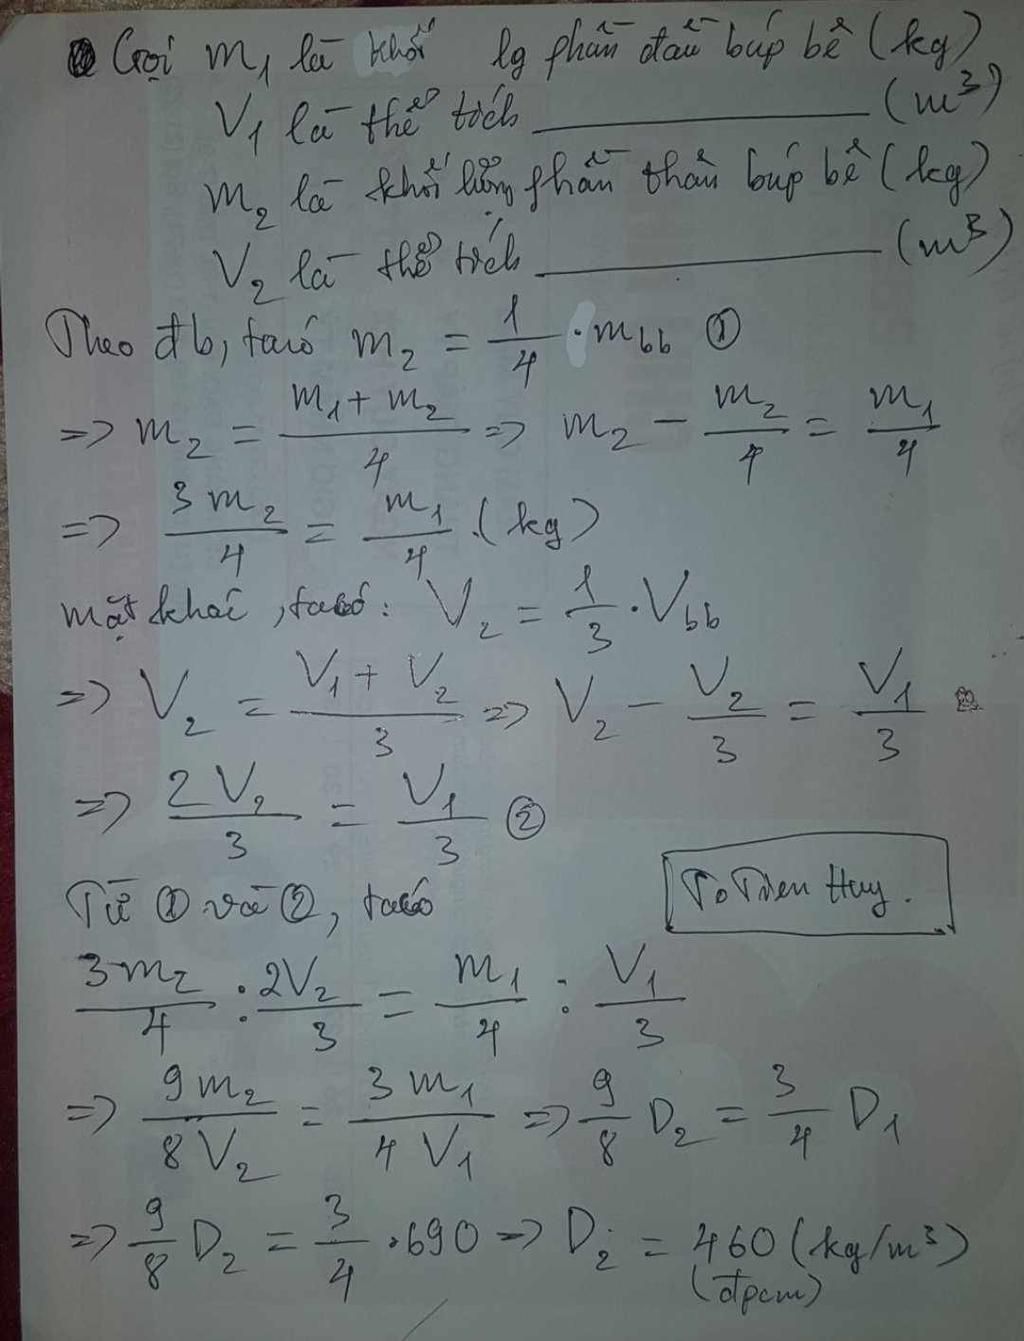 Gọi m₁ là khối lg phần đầu búp bê (kg)
V₁ là thể tích ______ (m³)
m₂ là khối lượng phần thân búp bê (kg)
V₂ là thể tích ______ (m³)
Theo đb, ta có m₂ = 1/4 · m_bb ①
=> m₂ = (m₁ + m₂)/4 => m₂ - m₂/4 = m₁/4
=> 3m₂/4 = m₁/4 (kg)
mặt khác, ta có: V₂ = 1/3 · V_bb
=> V₂ = (V₁ + V₂)/3 => V₂ - V₂/3 = V₁/3
=> 2V₂/3 = V₁/3 ②
Từ ① và ②, ta có
3m₂/4 : 2V₂/3 = m₁/4 : V₁/3
=> 9m₂/8V₂ = 3m₁/4V₁ => 9/8 D₂ = 3/4 D₁
=> 9/8 D₂ = 3/4 · 690 => D₂ = 460 (kg/m³)
(đpcm)